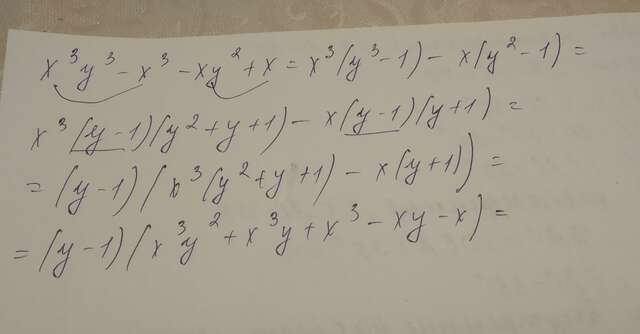 x³y³ - x³ - xy² + x = x³(y³ - 1) - x(y² - 1) =
x³(y - 1)(y² + y + 1) - x(y - 1)(y + 1) =
= (y - 1)(x³(y² + y + 1) - x(y + 1)) =
= (y - 1)(x³y² + x³y + x³ - xy - x) =